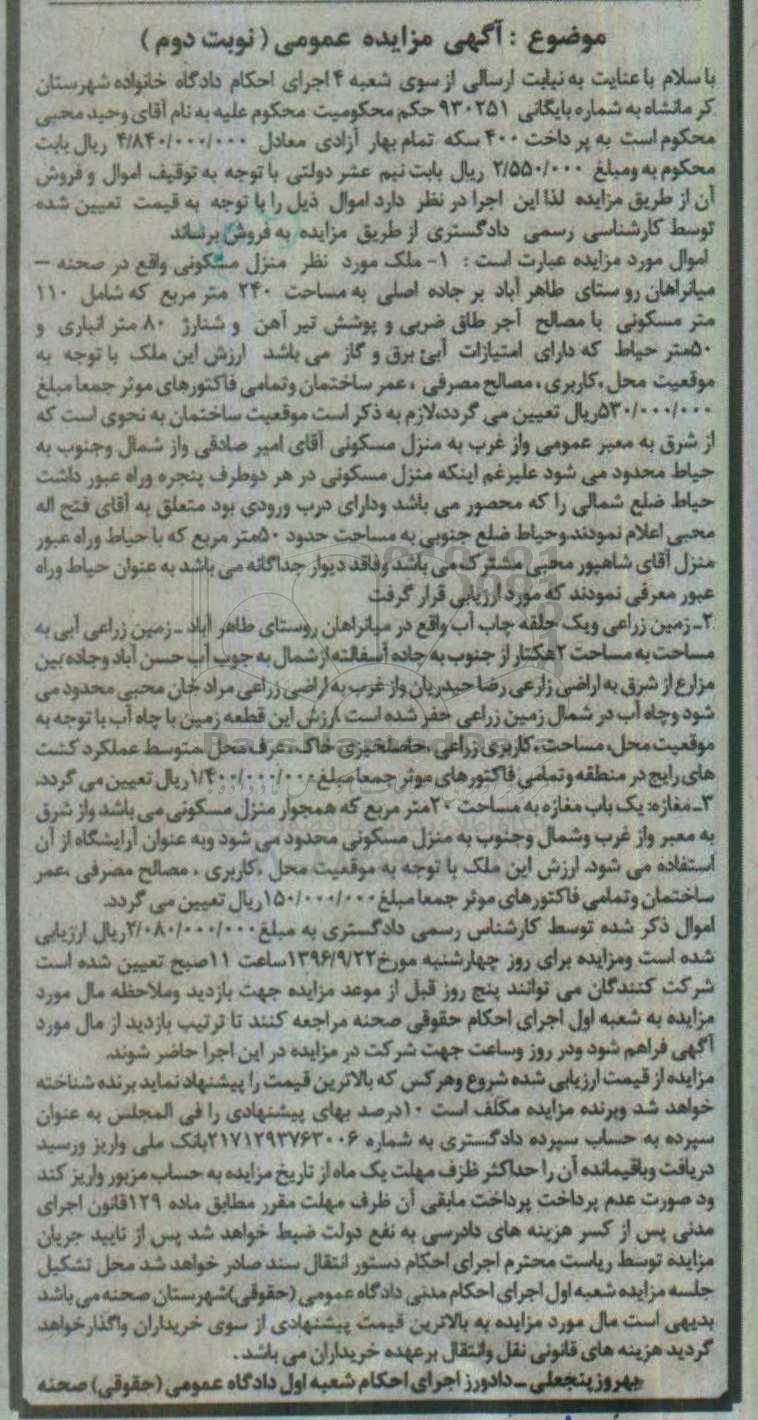 موضوع : آگهی مزایده عمومی ( نوبت دوم )
با سلام با عنایت به نیابت ارسالی از سوی شعبه ۴ اجرای احکام دادگاه خانواده شهرستان
کرمانشاه به شماره بایگانی ۹۳۰۲۵۱ حکم محکومیت محکوم علیه به نام آقای وحید محبی
محکوم است به پرداخت ۴۰۰ سکه تمام بهار آزادی معادل ۴/۸۴۰/۰۰۰/۰۰۰ ریال بابت
محکوم به ومبلغ ۲/۵۵۰/۰۰۰ ریال بابت نیم عشر دولتی با توجه به توقیف اموال و فروش
آن از طریق مزایده لذا این اجرا در نظر دارد اموال ذیل را با توجه به قیمت تعیین شده
توسط کارشناسی رسمی دادگستری از طریق مزایده به فروش برساند
اموال مورد مزایده عبارت است : ۱- ملک مورد نظر منزل مسکونی واقع در صحنه –
میانراهان رو ستای طاهر آباد بر جاده اصلی به مساحت ۲۴۰ متر مربع که شامل ۱۱۰
متر مسکونی با مصالح آجر طاق ضربی و پوشش تیر آهن و شناژ ۸۰ متر انباری و
۵۰متر حیاط که دارای امتیازات آبی برق و گاز می باشد ارزش این ملک با توجه به
موقعیت محل ،کاربری ، مصالح مصرفی ، عمر ساختمان وتمامی فاکتورهای موثر جمعا مبلغ
۵۳۰/۰۰۰/۰۰۰ریال تعیین می گردد،لازم به ذکر است موقعیت ساختمان به نحوی است که
از شرق به معبر عمومی واز غرب به منزل مسکونی آقای امیر صادقی واز شمال وجنوب به
حیاط محدود می شود علیرغم اینکه منزل مسکونی در هر دوطرف پنجره وراه عبور داشت
حیاط ضلع شمالی را که محصور می باشد ودارای درب ورودی بود متعلق به آقای فتح اله
محبی اعلام نمودند.وحیاط ضلع جنوبی به مساحت حدود ۵۰متر مربع که با حیاط وراه عبور
منزل آقای شاهپور محبی مشترک می باشد وفاقد دیوار جداگانه می باشد به عنوان حیاط وراه
عبور معرفی نمودند که مورد ارزیابی قرار گرفت
۲ـ زمین زراعی ویک حلقه چاب آب واقع در میانراهان روستای طاهر آباد ـ زمین زراعی آبی به
مساحت به مساحت ۲هکتار از جنوب به جاده آسفالته ازشمال به جوب آب حسن آباد وجاده بین
مزارع از شرق به اراضی زارعی رضا حیدریان واز غرب به اراضی زراعی مراد خان محبی محدود می
شود وچاه آب در شمال زمین زراعی حفر شده است ارزش این قطعه زمین با چاه آب با توجه به
موقعیت محل، مساحت ،کاربری زراعی ،حاصلخیزی خاک ، عرف محل ،متوسط عملکرد کشت
های رایج در منطقه وتمامی فاکتورهای موثر جمعا مبلغ ۱/۴۰۰/۰۰۰/۰۰۰ ریال تعیین می گردد.
۳ـ مغازه: یک باب مغازه به مساحت ۲۰متر مربع که همجوار منزل مسکونی می باشد واز شرق
به معبر واز غرب وشمال وجنوب به منزل مسکونی محدود می شود وبه عنوان آرایشگاه از آن
استفاده می شود. ارزش این ملک با توجه به موقعیت محل ،کاربری ، مصالح مصرفی ،عمر
ساختمان وتمامی فاکتورهای موثر جمعا مبلغ ۱۵۰/۰۰۰/۰۰۰ریال تعیین می گردد.
اموال ذکر شده توسط کارشناس رسمی دادگستری به مبلغ ۲/۰۸۰/۰۰۰/۰۰۰ریال ارزیابی
شده است ومزایده برای روز چهارشنبه مورخ۱۳۹۶/۹/۲۲ساعت ۱۱صبح تعیین شده است
شرکت کنندگان می توانند پنج روز قبل از موعد مزایده جهت بازدید وملاحظه مال مورد
مزایده به شعبه اول اجرای احکام حقوقی صحنه مراجعه کنند تا ترتیب بازدید از مال مورد
آگهی فراهم شود ودر روز وساعت جهت شرکت در مزایده در این اجرا حاضر شوند.
مزایده از قیمت ارزیابی شده شروع وهرکس که بالاترین قیمت را پیشنهاد نماید برنده شناخته
خواهد شد وبرنده مزایده مکلف است ۱۰درصد بهای پیشنهادی را فی المجلس به عنوان
سپرده به حساب سپرده دادگستری به شماره ۲۱۷۱۲۹۳۷۶۳۰۰۶بانک ملی واریز ورسید
دریافت وباقیمانده آن را حداکثر ظرف مهلت یک ماه از تاریخ مزایده به حساب مزبور واریز کند
ود صورت عدم پرداخت پرداخت مابقی آن ظرف مهلت مقرر مطابق ماده ۱۲۹قانون اجرای
مدنی پس از کسر هزینه های دادرسی به نفع دولت ضبط خواهد شد پس از تایید جریان
مزایده توسط ریاست محترم اجرای احکام دستور انتقال سند صادر خواهد شد محل تشکیل
جلسه مزایده شعبه اول اجرای احکام مدنی دادگاه عمومی (حقوقی)شهرستان صحنه می باشد
بدیهی است مال مورد مزایده به بالاترین قیمت پیشنهادی از سوی خریداران واگذارخواهد
گردید هزینه های قانونی نقل وانتقال برعهده خریداران می باشد .
بهروز پنجعلی ـ دادورز اجرای احکام شعبه اول دادگاه عمومی (حقوقی) صحنه